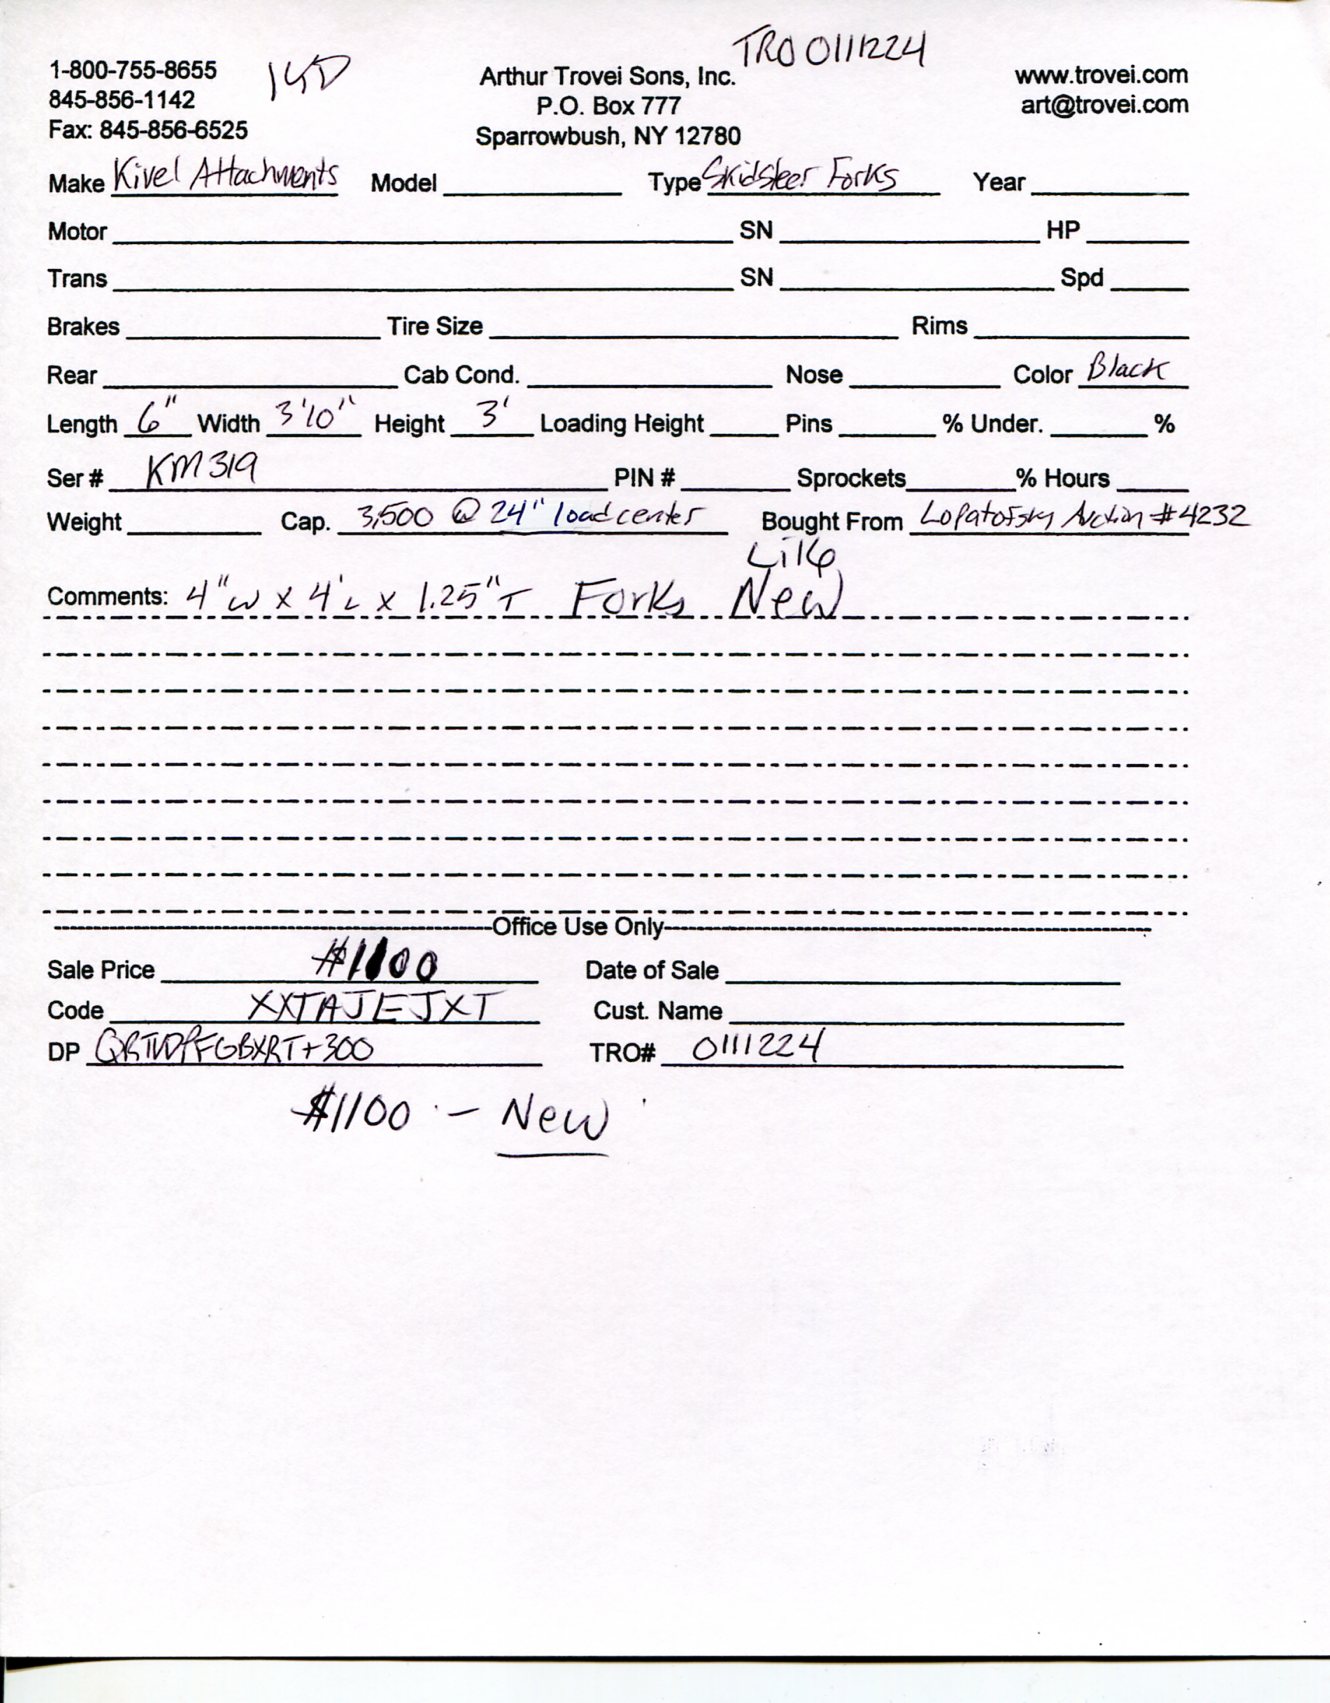 TRO 0111224
1-800-755-8655 Arthur Trovei Sons, Inc. www.trovei.com
845-856-1142 P.O. Box 777 art@trovei.com
Fax: 845-856-6525 Sparrowbush, NY 12780
Make Kivel Attachments Model Type Skidsteer Forks Year
Motor SN HP
Trans SN Spd
Brakes Tire Size Rims
Rear Cab Cond. Nose Color Black
Length 6" Width 3'10" Height 3' Loading Height Pins % Under. %
Ser # KM319 PIN # Sprockets % Hours
Weight Cap. 3,500 @ 24" load center Bought From Lopatofsky Auction #4232
Like
Comments: 4"W x 4'L x 1.25"T Forks New
Office Use Only
Sale Price $1100 Date of Sale
Code XXTAJEJXT Cust. Name
DP +300 TRO# 0111224
$1100 - New